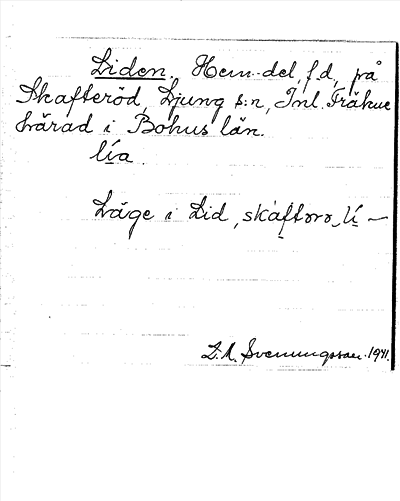 Liden. Hem.-del, f.d, på
Skafteröd, Ljung s:n, Inl. Fräkne
härad i Bohus län.
lía.
Läge i Lid, skàftørø, lí —
Z. A. Svenungsson. 1941.